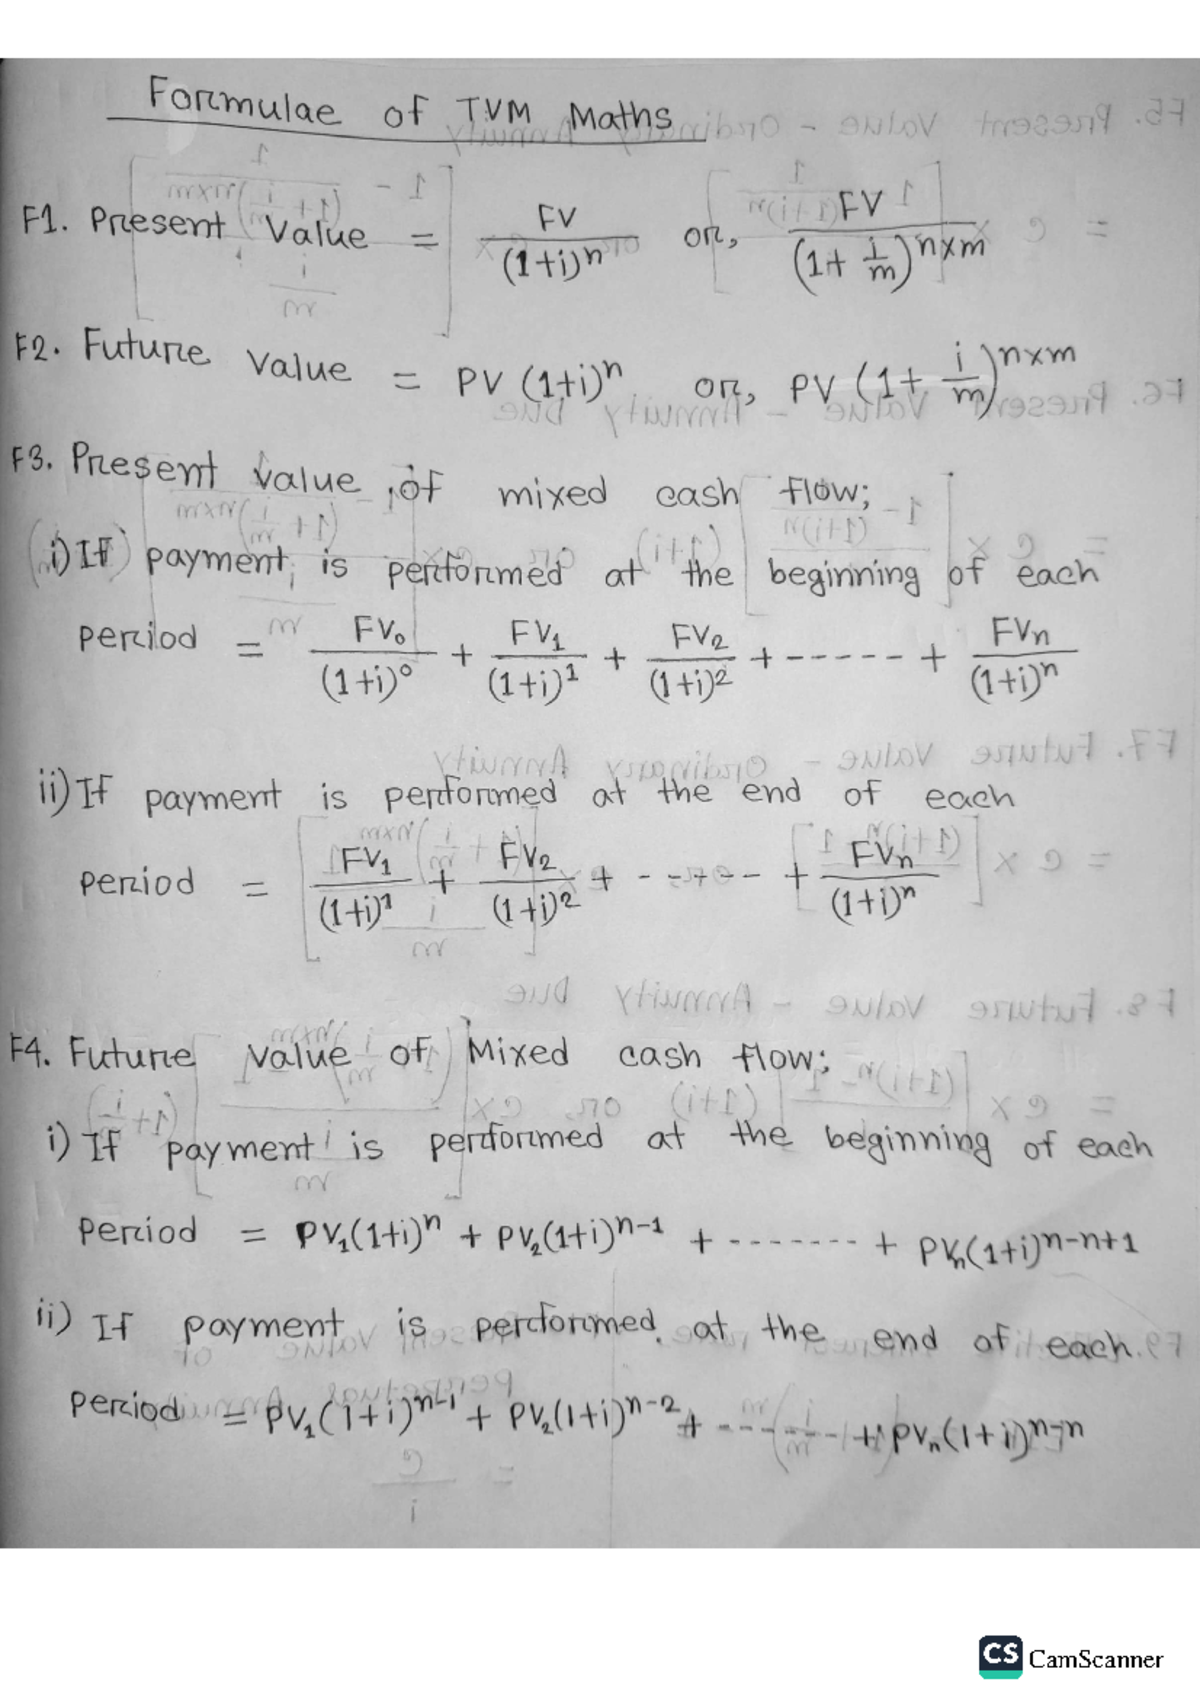 Formulae of TVM Maths
F1. Present Value = FV/(1+i)^n or, FV/(1+ i/m)^n×m
F2. Future Value = PV (1+i)^n or, PV (1+ i/m)^n×m
F3. Present value of mixed cash flow;
i) If payment is performed at the beginning of each
period = FV₀/(1+i)^0 + FV₁/(1+i)^1 + FV₂/(1+i)^2 + ------ + FVn/(1+i)^n
ii) If payment is performed at the end of each
period = FV₁/(1+i)^1 + FV₂/(1+i)^2 + ------ + FVn/(1+i)^n
F4. Future Value of Mixed cash flow;
i) If payment is performed at the beginning of each
period = PV₁(1+i)^n + PV₂(1+i)^n-1 + ------- + PVn(1+i)^n-n+1
ii) If payment is performed at the end of each
period = PV₁(1+i)^n-1 + PV₂(1+i)^n-2 + ------- + PVn(1+i)^n-n
CS CamScanner